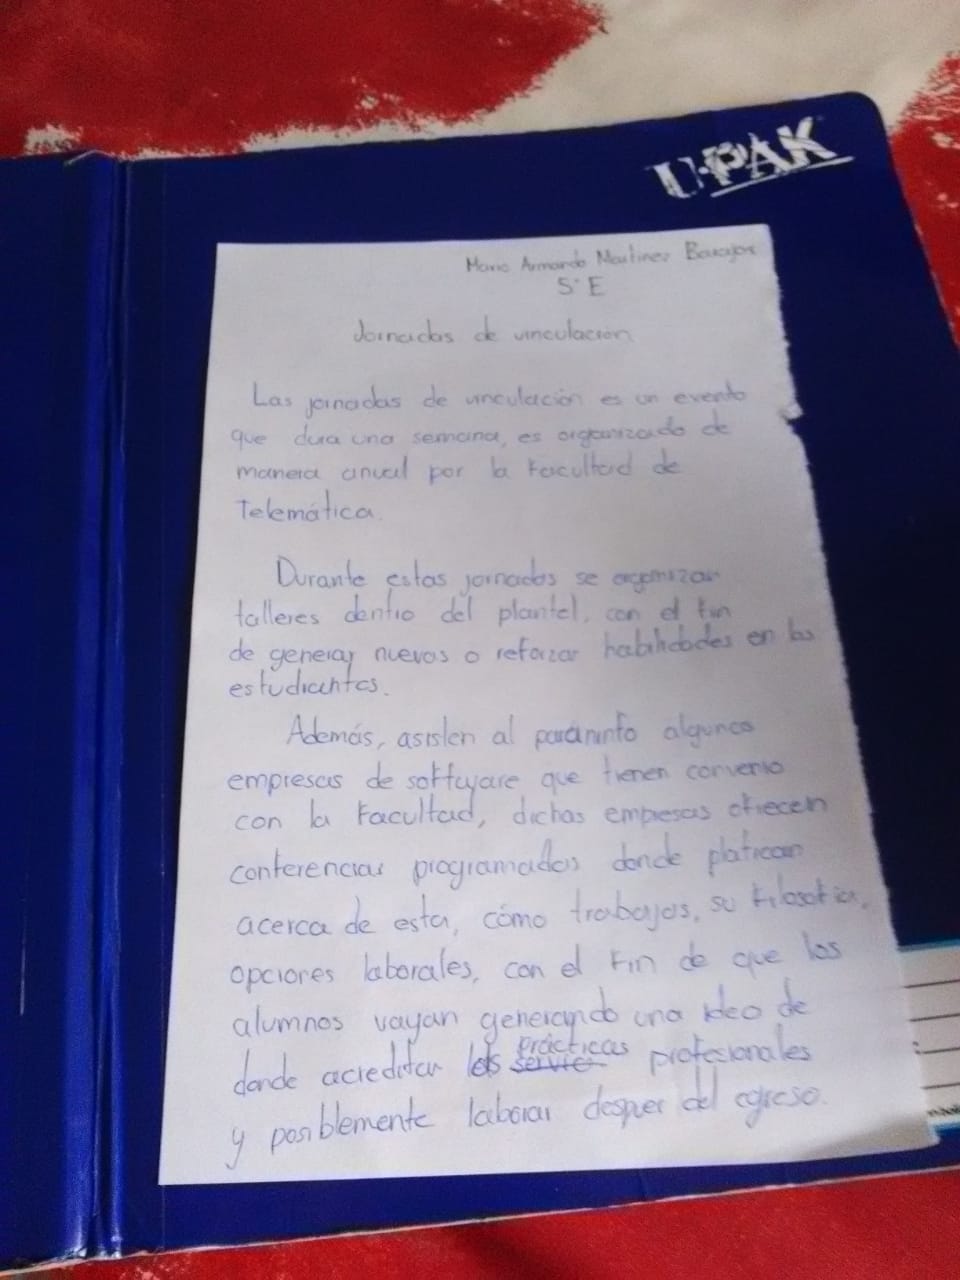 U·PAK
Mario Armando Martinez Barajas
5°E
Jornadas de vinculación
Las jornadas de vinculación es un evento
que dura una semana, es organizado de
manera anual por la Facultad de
Telemática.
Durante estas jornadas se organizan
talleres dentro del plantel, con el fin
de generar nuevas o reforzar habilidades en los
estudiantes.
Además, asisten al paraninfo algunas
empresas de software que tienen convenio
con la Facultad, dichas empresas ofrecen
conferencias programadas donde platican
acerca de esta, cómo trabajas, su filosofia,
opciones laborales, con el fin de que los
alumnos vayan generando una idea de
donde acreditar las prácticas profesionales
y posiblemente laborar despues del egreso.